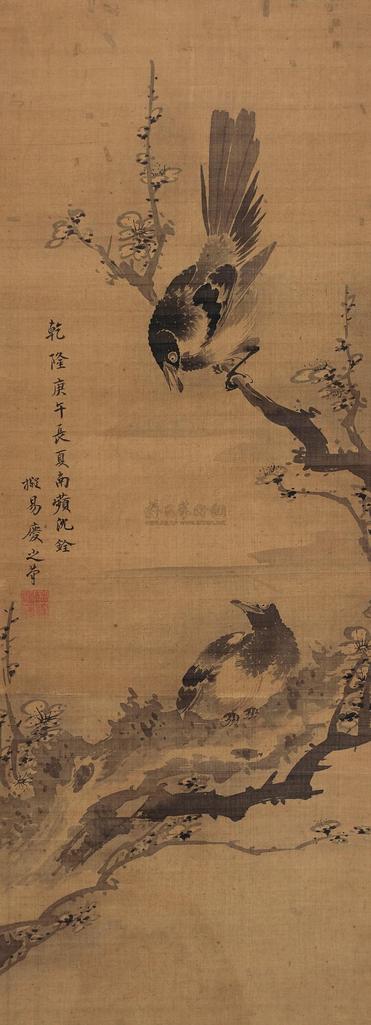 乾隆庚午長夏南蘋沈銓
擬易慶之筆